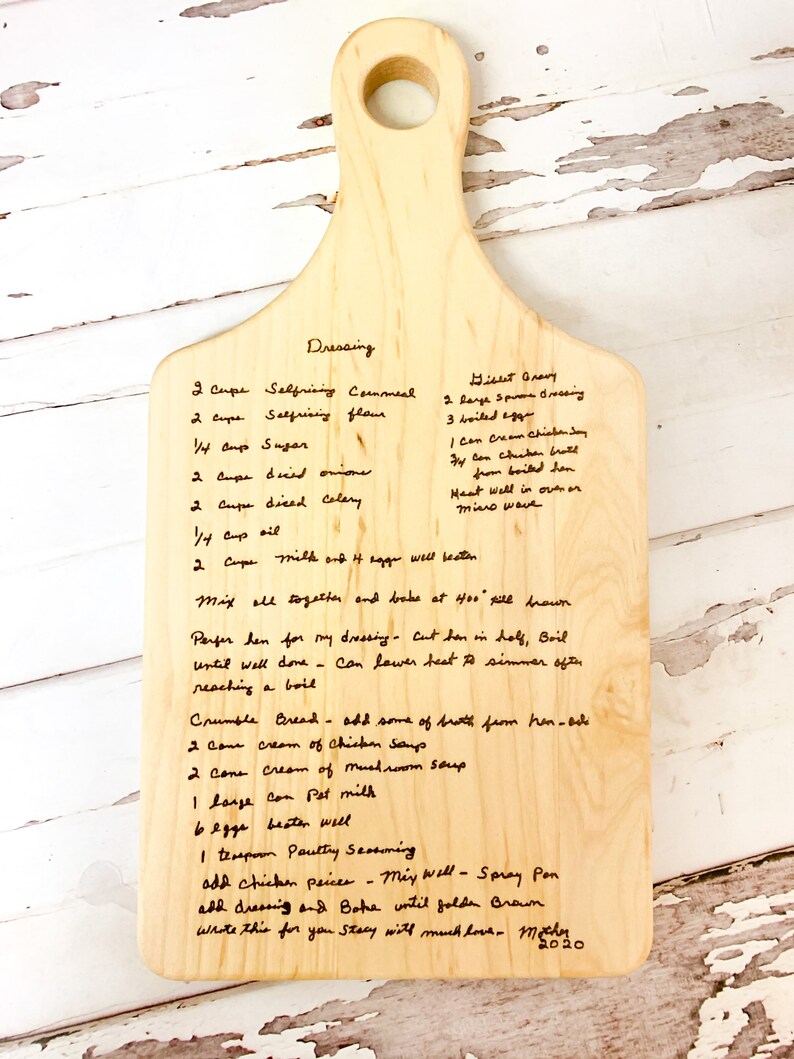 Dressing
2 cups Selfrising Cornmeal
2 cups Selfrising flour
1/4 cup Sugar
2 cups diced onions
2 cups diced Celery
1/4 cup oil
2 cups milk and 4 eggs well beaten
Mix all together and bake at 400° till brown
Perfer hen for my dressing - Cut hen in half, Boil
until well done - Can lower heat to simmer after
reaching a boil
Crumble Bread - add some of broth from hen - add
2 cans cream of chicken soup
2 cans cream of mushroom soup
1 large can Pet milk
6 eggs beaten well
1 teaspoon Poultry Seasoning
add chicken peices - Mix Well - Spray Pan
add dressing and Bake until golden Brown
Wrote this for you Stacy with much love - Mother
2020
Giblet Gravy
2 large spoons dressing
3 boiled eggs
1 can cream chicken soup
3/4 can chicken broth
from boiled hen
Heat well in oven or
Micro wave